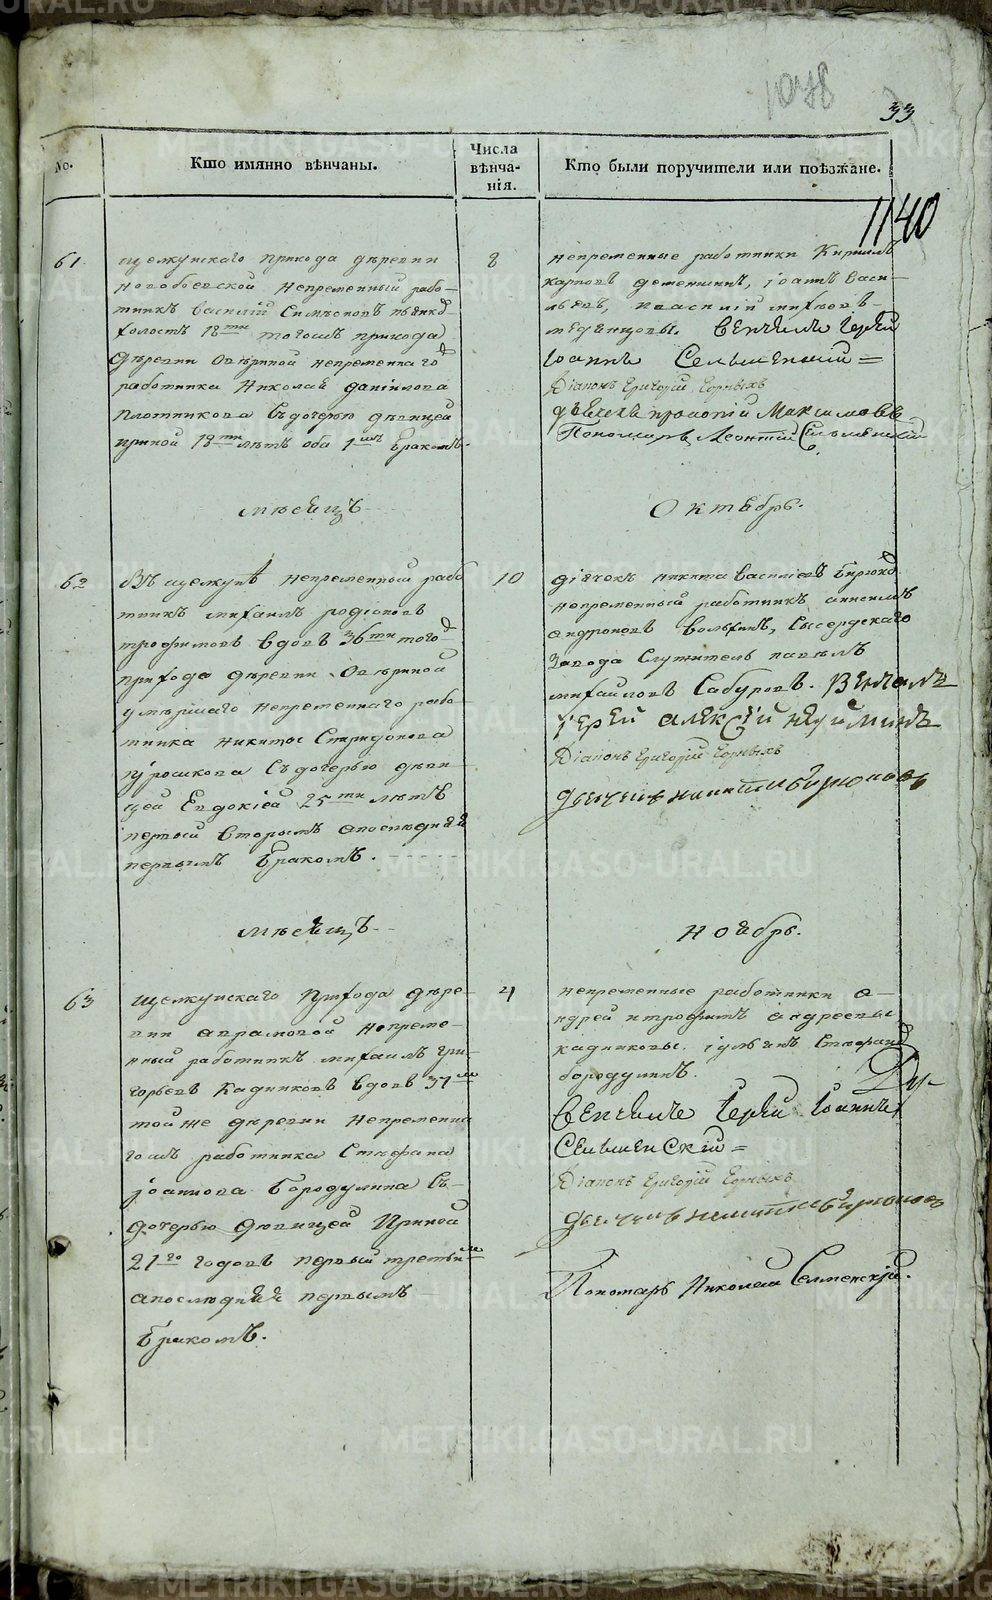 1078
33
No.
Кто имянно вѣнчаны.
Числа
вѣнча-
нія.
Кто были поручители или поѣзжане.
1140
61
щелкунскаго прихода деревни
непременной рабо-
тникъ василій
холостъ 18ти тогожъ прихода
деревни непременнаго
работника Николая данилова
плотникова съ дочерью девицей
ириной 18ти летъ оба 1мъ бракомъ
8
непременные работники Кирилъ
карповъ дементьинъ, іоаннъ васи-
льевъ, василій
медянцовы. Венчалъ Іерей
Іоаннъ Селменскій =
Діаконъ Григорій Горныхъ
дьячекъ прокопій Максимовъ
Пономарь Леонтий Селменскій
месяцъ
Октябрь.
62
Въ щелкунѣ непременный рабо
тникъ михаилъ родіоновъ
трофимовъ вдовъ 36ти того
прихода деревни
умершаго непременнаго рабо-
тника никиты Спиридонова
съ дочерью деви-
цей Евдокіей 25ти летъ
первый вторымъ апоследняя
первымъ бракомъ.
10
дьячокъ никита василіевъ
непременный работникъ
андроновъ Сысердскаго
завода служитель павелъ
михайловъ Сабуровъ. Венчалъ
іерей алексій
Діаконъ Григорій Горныхъ
дьячекъ никита бирюковъ
месяцъ
Ноябрь.
63
щелкунскаго прихода дере-
вни аврамовой непреме-
нный работникъ михаилъ гри-
горьевъ Кадниковъ вдовъ 37ми
той же деревни непременна
гожъ работника Стефана
іоаннова бородулина съ-
дочерью девицей Ириной
21го годовъ первый третьимъ
апоследняя первымъ
бракомъ.
4
непременные работники а-
ндрей итрофимъ андреевы
кадниковы. іульянъ Стефановъ
бородулинъ.
Ду-
Венчалъ Іерей Іоаннъ
Селменскій =
Діаконъ Григорій Горныхъ
дьячекъ никита бирюковъ
Пономарь Николай Селменскій.
METRIKI.GASO-URAL.RU